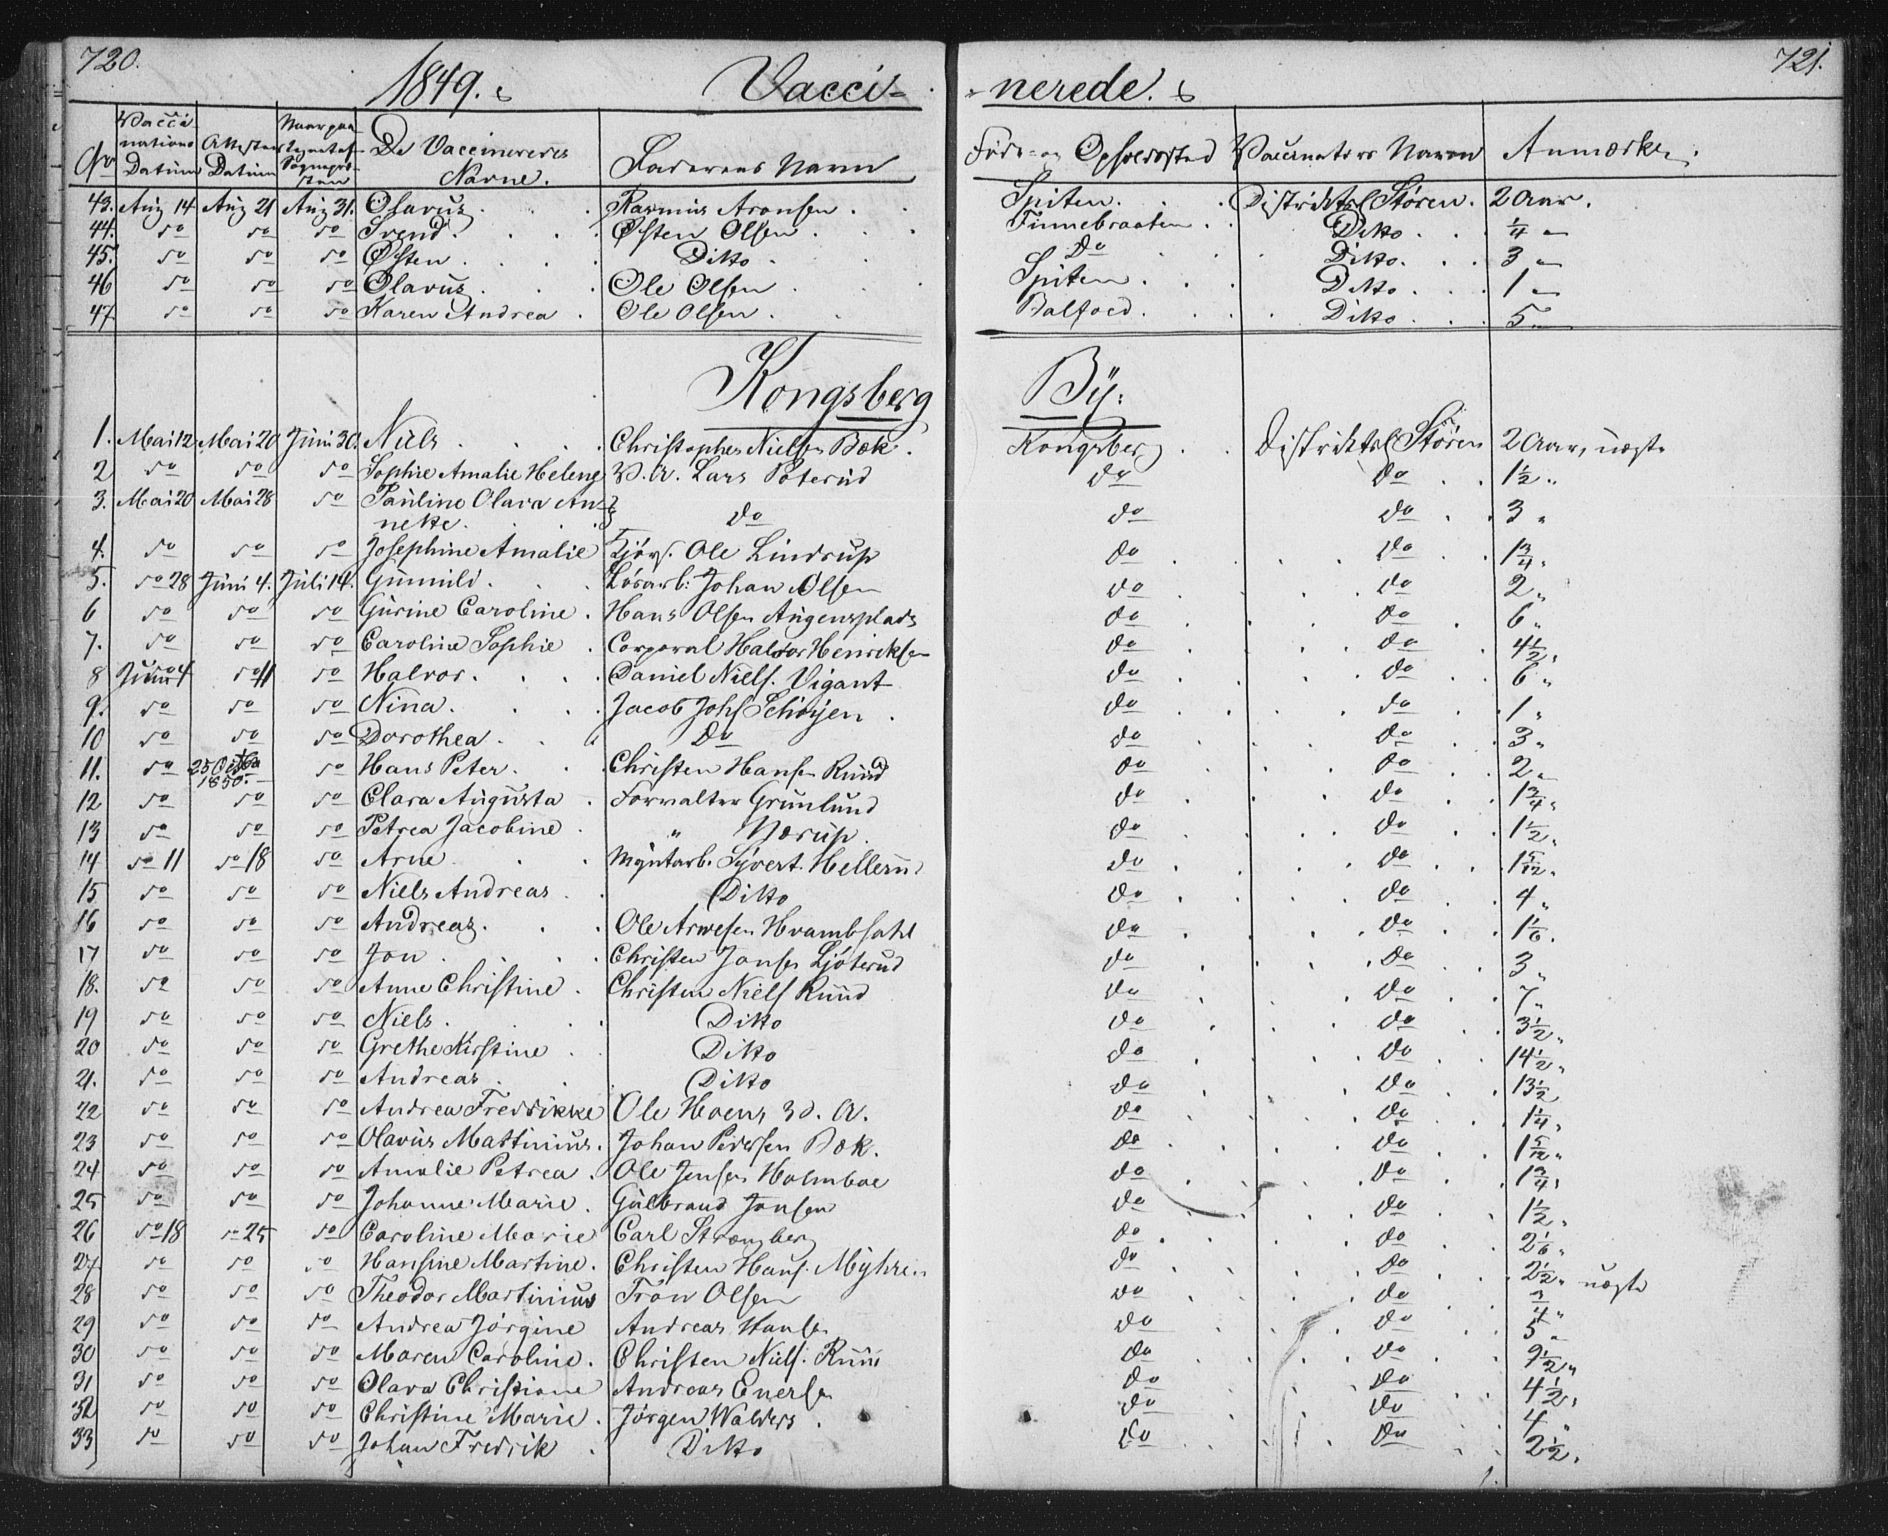 720. 721.
1849. Vacci- -nerede.
No Vaccinations Datum Attestens Datum Naar paategnet af Sognepresten De Vaccineredes Navne. Faderens Navn Føde- og Opholdssted Vaccinators Navn Anmærkn.
43. Aug 14 Aug 21 Aug 31. Olavus Rasmus Aronsen Spiten Distriktsl Støren. 2 Aar.
44. do do do Trend Østen Olsen Finnebraaten Ditto ¼ "
45. do do do Østen Ditto Do Ditto 3 "
46 do do do Olavus Ole Olsen Spiten Ditto 1 "
47 do do do Karen Andrea Ole Olsen Ditto 5 "
Kongsberg By:
1. Mai 12 Mai 20 Juni 30. Niels Christopher Nielsen Bæk. Kongsberg Distriktsl Støren 2 Aar, uægte
2 do do do Sophie Amalie Helene P. A. Lars Poterud do do 1½ "
3. Mai 20 Mai 28 do Pauline Olava An-
nette. do do do 3 "
4. do do do Josephine Amalie Kjørs. Ole Lindrup do do 1¾ "
5. do 28 Juni 4. Juli 14. Gunnild Løsarb: Johan Olsen do do 2 "
6 do do do Gurine Caroline Hans Olsen Augensplads do do 6 "
7. do do do Caroline Sophie Corporal Halvor Henriksen do do 4½ "
8 Juni 4 do 11 do Halvor Daniel Niels. Vigant do do 6 "
9. do do do Nina Jacob Johs Schøyen do do 1 "
10 do do do Dorothea Do do do 3 "
11. do 25 Octbr
1850. do Hans Peter Christen Hansen Ruud do do 2 "
12 do do do Clara Augusta Forvalter Grünlund do do 1¾ "
13 do do do Petrea Jacobine " Nærup. do do 1½ "
14 do 11 do 18 do Arne Myntarb. Syvert. Hellerud do do 1 5/12 "
15 do do do Niels Andreas Ditto do do 4 "
16 do do do Andreas Ole Arnesen Hvambsahl do do 1 1/6.
17 do do do Jon Christen Jonsen Ljøterud do do 3 "
18. do do do Anne Christine Christen Niels Ruud do do 7 "
19 do do do Niels Ditto do do 3½ "
20 do do do Grethe Kirstine Ditto do do 14½ "
21. do do do Andreas Ditto do do 13½
22 do do do Andrea Fredrikke Ole Hoens 3d. A. do do 1¼ "
23 do do do Olavus Mattinius Johan Pedersen Bæk. do do 1 5/12 "
24 do do do Amalie Petrea Ole Jensen Holmboe do do 1¾ "
25 do do do Johanne Marie Gulbrand Jonsen do do 1½ "
26 do 18 do 25 do Caroline Marie Carl Strømberg do do 2 1/6 "
27 do do do Hansine Martine. Christen Hans. Myhren do do 2½ " uægte
28 do do do Theodor Martinius Tron Olsen do do ¾ "
29 do do do Andrea Jørgine Andreas Hansen do do 5 "
30 do do do Maren Caroline. Christen Niels. Ruud do do 9½ "
31 do do do Olava Christiane Andreas Enersen do do 4½ "
32 do do do Christine Marie Jørgen Walders do do 4 "
33 do do do Johan Fredrik Ditto do do 2½ "